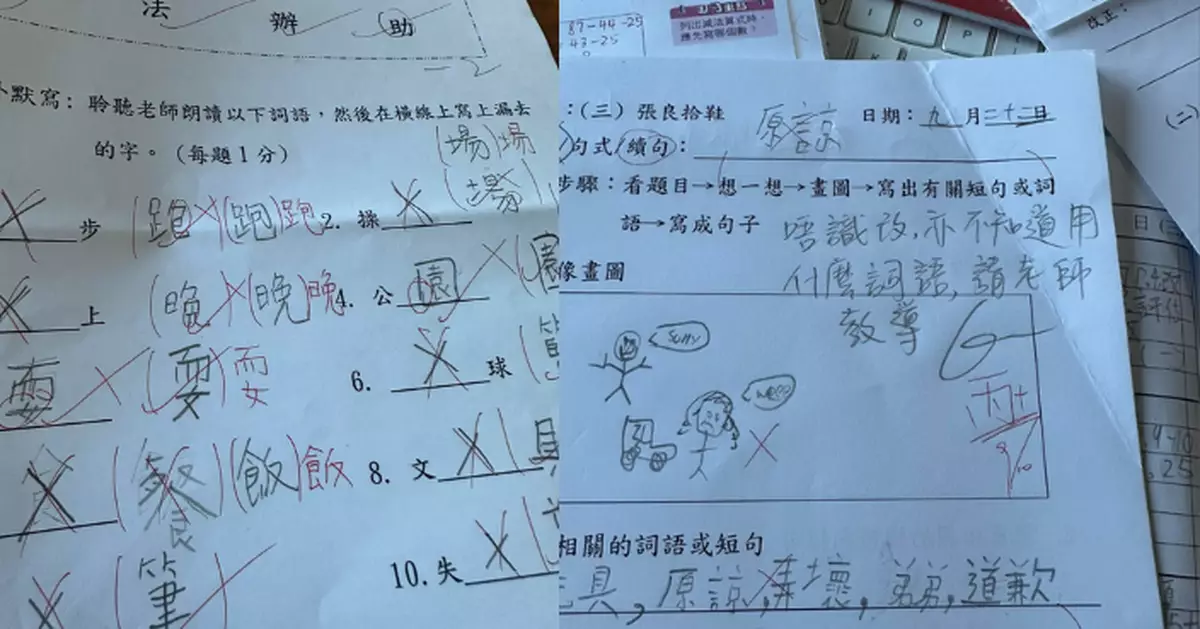 法 辦 助
默寫：聆聽老師朗讀以下詞語，然後在橫線上寫上漏去
的字。（每題1分）
(場)場
步 (跑)(跑)跑 2. 操 (場)
上 (晚)(晚)晚 4. 公 園
耍 (耍)耍 6. 球
(餐)(飯)飯 8. 文
筆 10. 失
87-44-25
43-25
列出減法算式時，
應先寫哪個數？
改正：
：(三) 張良拾鞋 原諒 日期：九 月二十二日
句式/續句：
步驟：看題目→想一想→畫圖→寫出有關短句或詞
語→寫成句子
唔識改，亦不知道用
什麼詞語，請老師
教導
像畫圖
Sorry
丙+
9/10
相關的詞語或短句
具，原諒，弄壞，弟弟，道歉